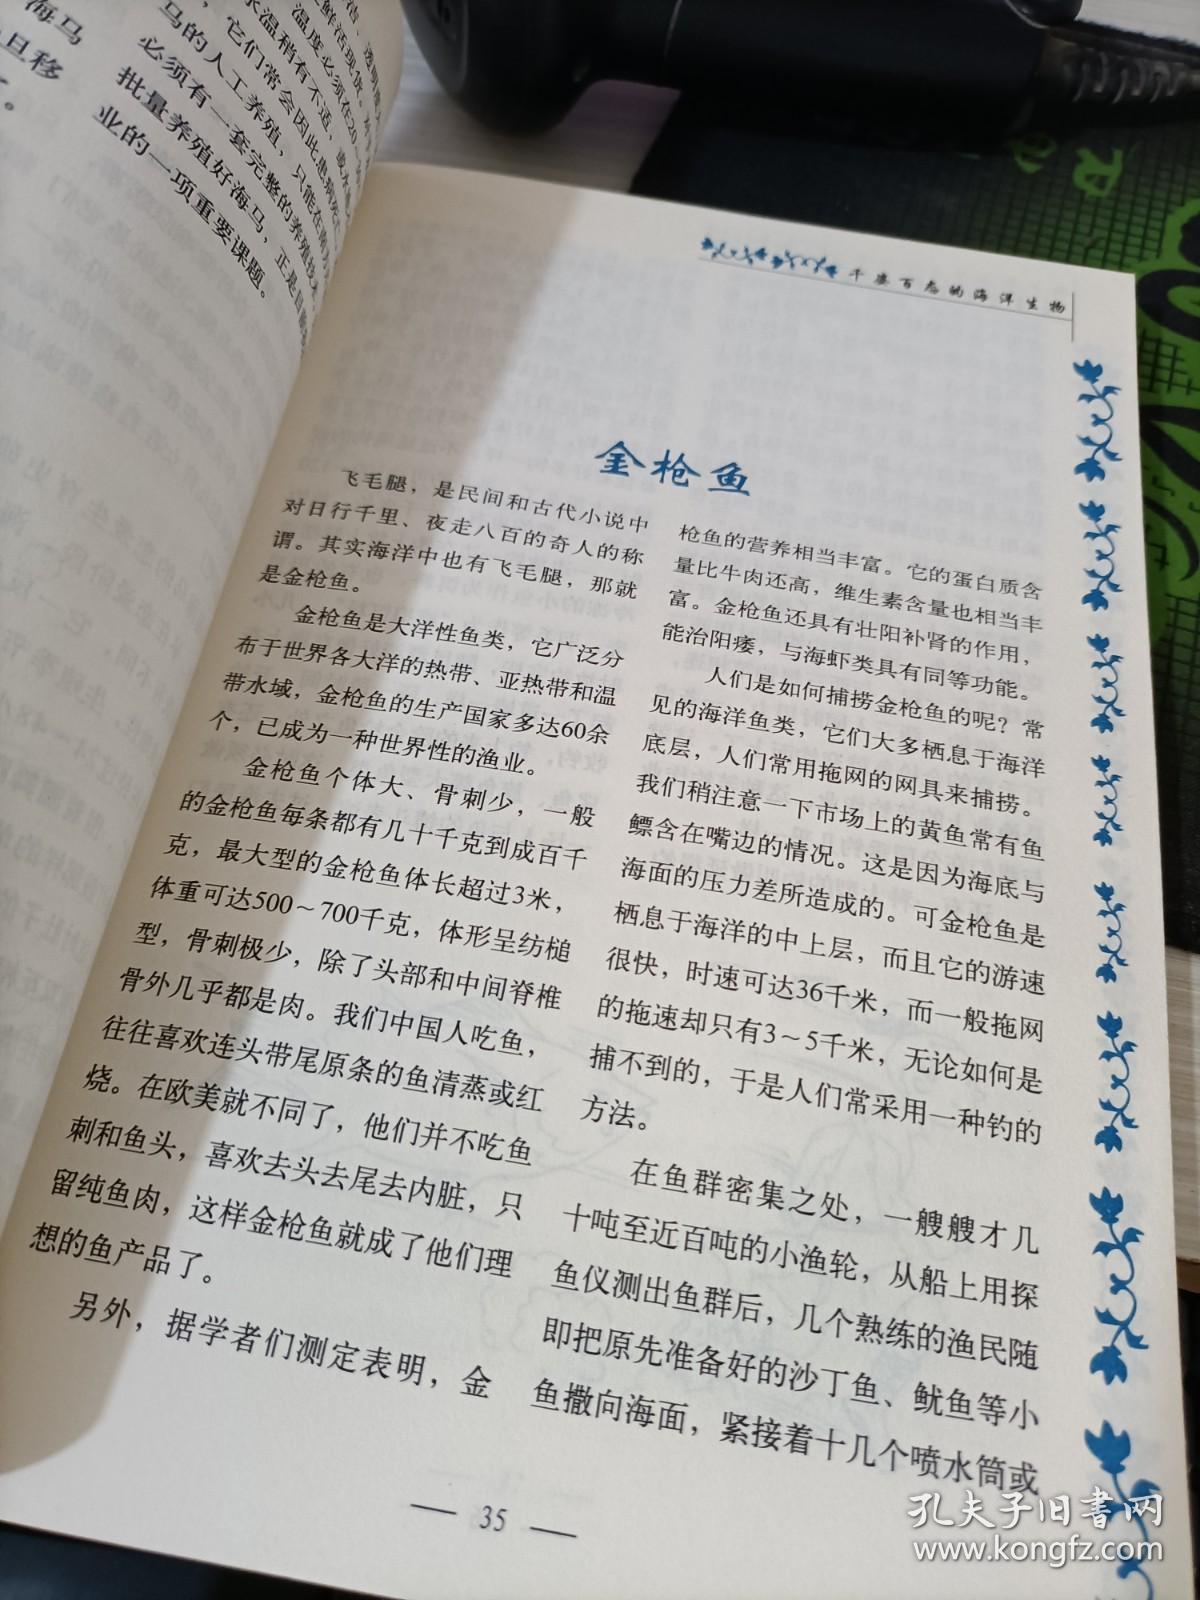 海马
旦移
。
洁、透明度大
鲜活现货。
温度必须在20
水温稍有不适，或水
，它们常会因此患病死亡
马的人工养殖，只能在南
必须有一套完整的养殖技术
批量养殖好海马，正是目前
业的一项重要课题。
千姿百态的海洋生物
金枪鱼
飞毛腿，是民间和古代小说中
对日行千里、夜走八百的奇人的称
谓。其实海洋中也有飞毛腿，那就
是金枪鱼。
金枪鱼是大洋性鱼类，它广泛分
布于世界各大洋的热带、亚热带和温
带水域，金枪鱼的生产国家多达60余
个，已成为一种世界性的渔业。
金枪鱼个体大、骨刺少，一般
的金枪鱼每条都有几十千克到成百千
克，最大型的金枪鱼体长超过3米，
体重可达500～700千克，体形呈纺槌
型，骨刺极少，除了头部和中间脊椎
骨外几乎都是肉。我们中国人吃鱼，
往往喜欢连头带尾原条的鱼清蒸或红
烧。在欧美就不同了，他们并不吃鱼
刺和鱼头，喜欢去头去尾去内脏，只
留纯鱼肉，这样金枪鱼就成了他们理
想的鱼产品了。
另外，据学者们测定表明，金
枪鱼的营养相当丰富。它的蛋白质含
量比牛肉还高，维生素含量也相当丰
富。金枪鱼还具有壮阳补肾的作用，
能治阳痿，与海虾类具有同等功能。
人们是如何捕捞金枪鱼的呢？常
见的海洋鱼类，它们大多栖息于海洋
底层，人们常用拖网的网具来捕捞。
我们稍注意一下市场上的黄鱼常有鱼
鳔含在嘴边的情况。这是因为海底与
海面的压力差所造成的。可金枪鱼是
栖息于海洋的中上层，而且它的游速
很快，时速可达36千米，而一般拖网
的拖速却只有3～5千米，无论如何是
捕不到的，于是人们常采用一种钓的
方法。
在鱼群密集之处，一艘艘才几
十吨至近百吨的小渔轮，从船上用探
鱼仪测出鱼群后，几个熟练的渔民随
即把原先准备好的沙丁鱼、鱿鱼等小
鱼撒向海面，紧接着十几个喷水筒或
— 35 —
孔夫子旧书网
www.kongfz.com